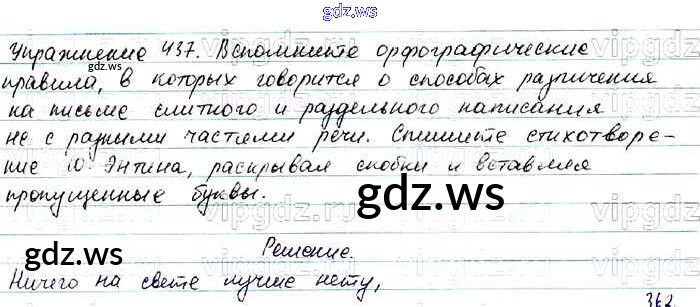 gdz.ru
Упражнение 437. Вспомните орфографические
правила, в которых говорится о способах различения
на письме слитного и раздельного написания
не с разными частями речи. Спишите стихотворе-
ние Ю. Энтина, раскрывая скобки и вставляя
пропущенные буквы.
gdz.ru
Решение.
gdz.ru
Ничего на свете лучше нету,
362